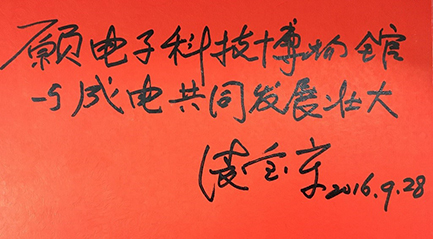 愿电子科技博物馆
与成电共同发展壮大
2016.9.28